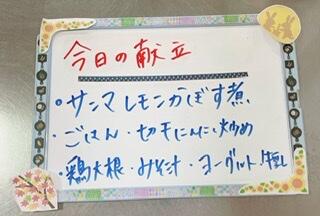 今日の献立
・サンマレモンかぼす煮
・ごはん・切干にんにく炒め
・鶏大根・みそ汁・ヨーグルト